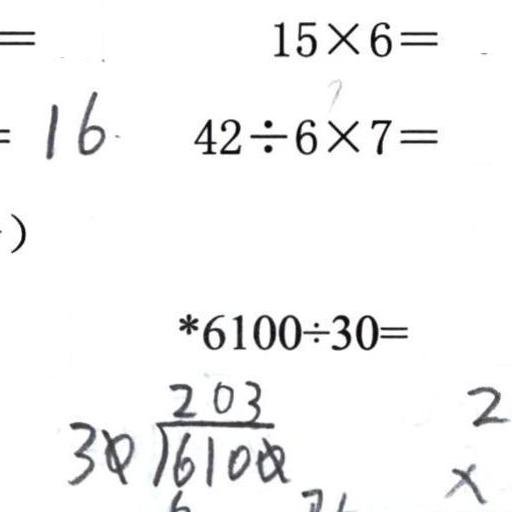 = 15×6=
= 16 42÷6×7=
)
*6100÷30=
203
30)6100 2
6 ×